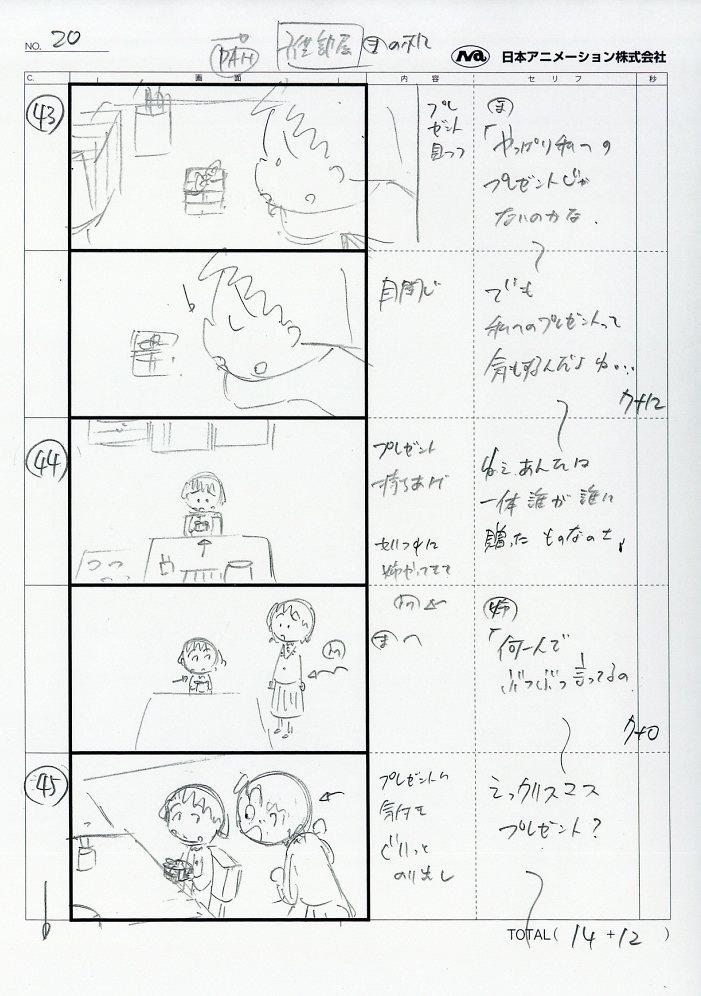 NO. 20
PAN
日本アニメーション株式会社
C. 画面 内容 セリフ 秒
43
プレゼント
見つつ
ま
「やっぱり私への
プレゼントじゃ
ないのかな、
目閉じ
でも
私へのプレゼントって
気もするんだよね…
7+12
44
プレゼント
持ちあげ
ねえ、あんたは
一体誰が誰に
贈ったものなのさ」
姉やってきて
ま へ
姉
「何一人で
ぶつぶつ言ってるの
7+0
45
プレゼントに
気付き
ぐいっと
のり出し
えっクリスマス
プレゼント?
TOTAL( 14 +12 )